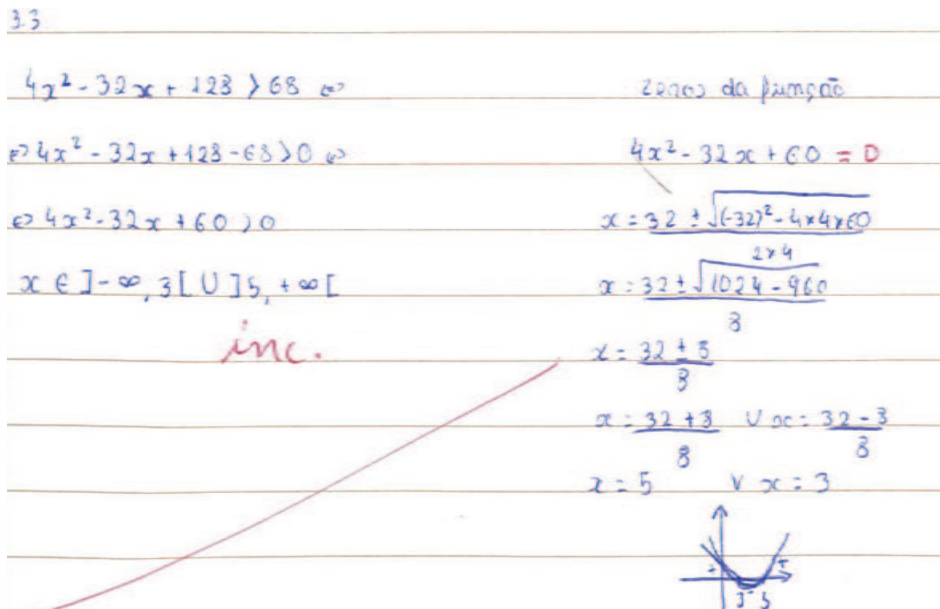 3.3
4x² - 32x + 128 > 68 ⇔
⇔ 4x² - 32x + 128 - 68 > 0 ⇔
⇔ 4x² - 32x + 60 > 0
x ∈ ]-∞, 3[ ∪ ]5, +∞[
inc.
zeros da função
4x² - 32x + 60 = 0
x = 32 ± √(-32)² - 4×4×60
2×4
x = 32 ± √1024 - 960
8
x = 32 ± 8
8
x = 32 + 8 ∨ x = 32 - 8
8 8
x = 5 ∨ x = 3
+ +
3 - 5